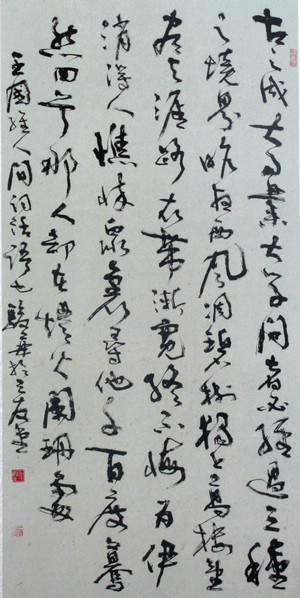 古之成大事業大學問者必經過三種
之境界昨夜西風凋碧樹獨上高樓望
盡天涯路衣帶漸寬終不悔為伊
消得人憔悴眾裏尋他千百度驀
然回首那人却在燈火闌珊處
王國維人間詞話語也